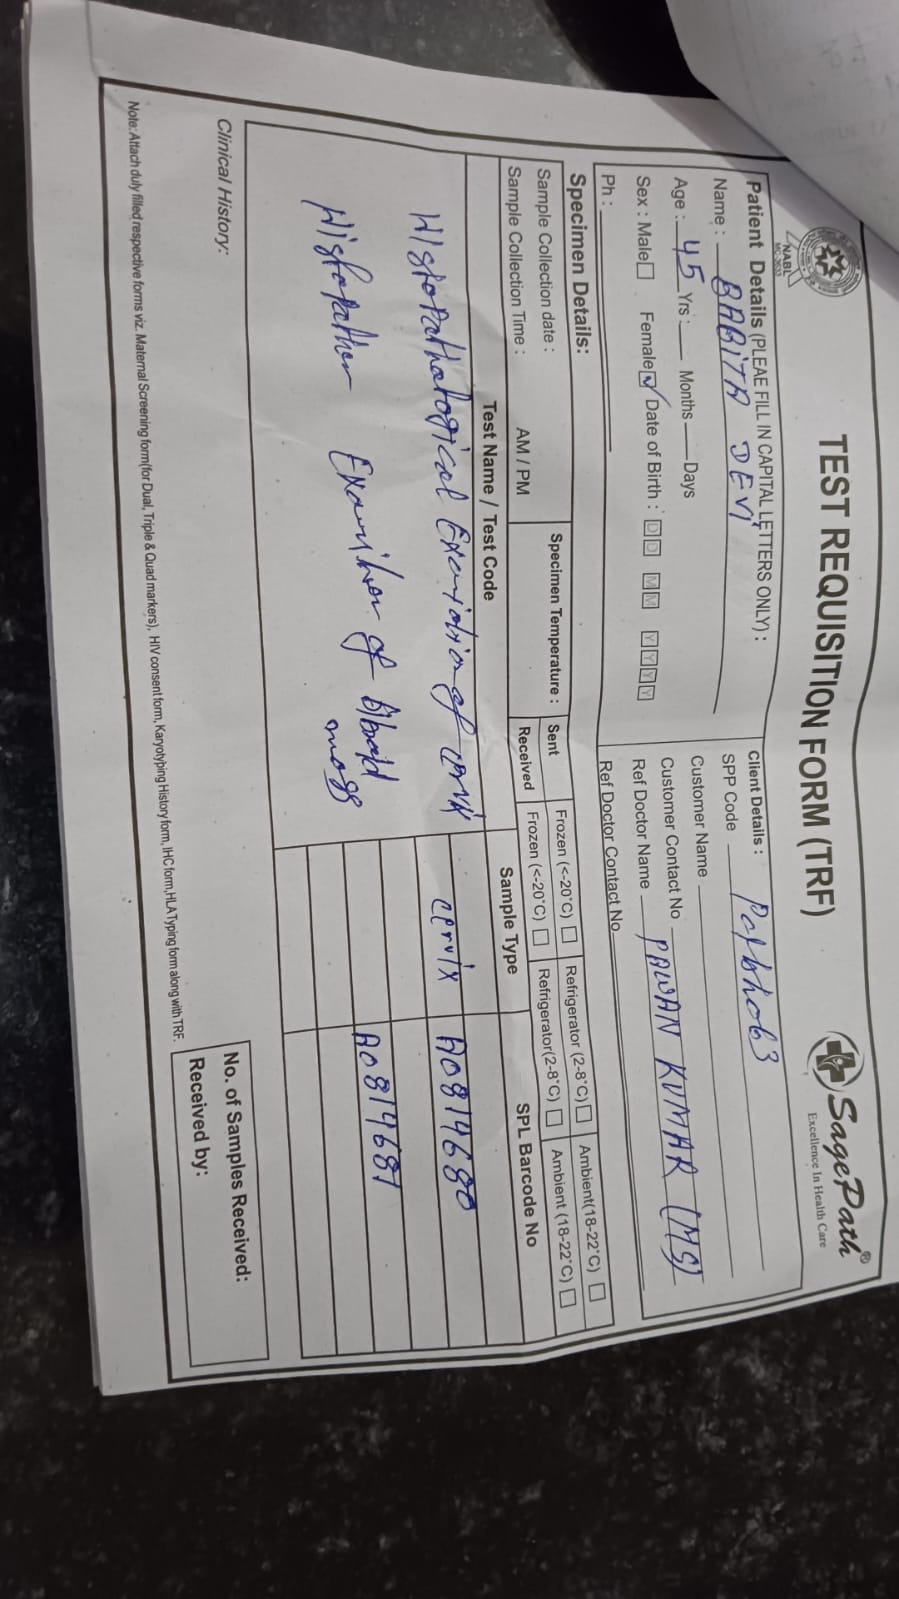 TEST REQUISITION FORM (TRF)
SagePath®
Excellence In Health Care
NABL
Patient Details (PLEAE FILL IN CAPITAL LETTERS ONLY) :
Name : BABITA DEVI
Age : 45 Yrs : Months Days
Sex : Male Female Date of Birth : D D M M Y Y Y Y
Ph :
Client Details :
SPP Code
Customer Name
Customer Contact No
Ref Doctor Name PAWAN KUMAR (MS)
Ref Doctor Contact No
Specimen Details:
Sample Collection date :
Sample Collection Time : AM / PM
Specimen Temperature :
Sent Frozen (<-20°C) Refrigerator (2-8°C) Ambient(18-22°C)
Received Frozen (<-20°C) Refrigerator(2-8°C) Ambient (18-22°C)
Test Name / Test Code Sample Type SPL Barcode No
Histopathological of cervix A0814680
of mass A0814681
Clinical History:
No. of Samples Received:
Received by:
Note: Attach duly filled respective forms viz. Maternal Screening form(for Dual, Triple & Quad markers), HIV consent form, Karyotyping History form, IHC form,HLA Typing form along with TRF.